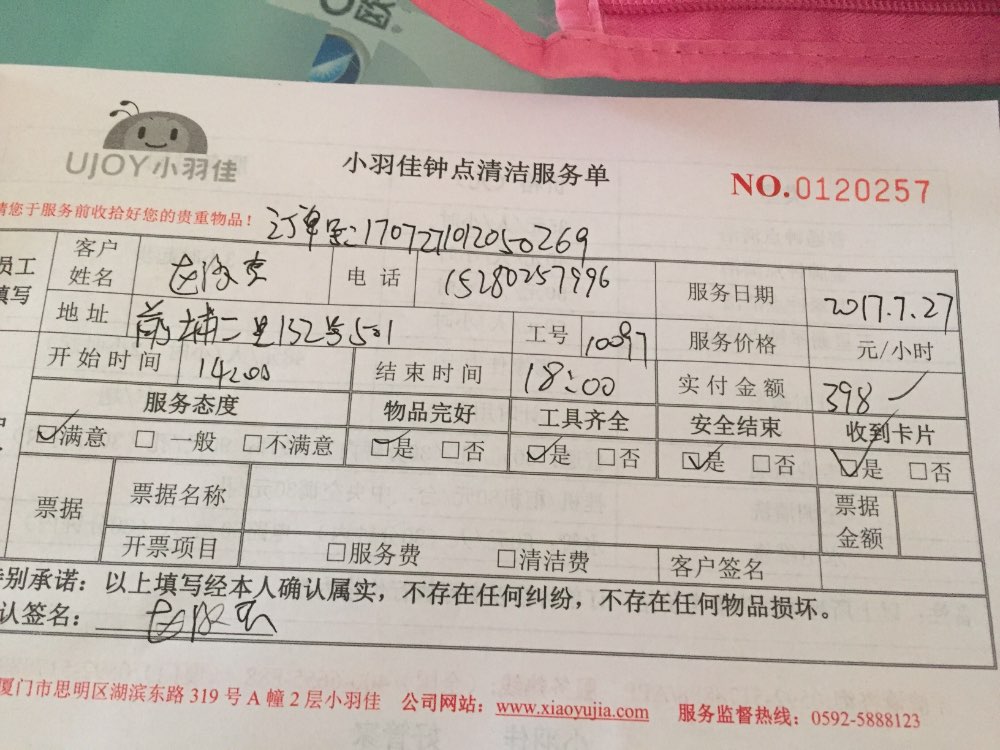 欧
UJOY小羽佳
小羽佳钟点清洁服务单
NO.0120257
请您于服务前收拾好您的贵重物品！
订单号：1707271012050269
员工填写
客户姓名
电话 15280257996
服务日期 2017.7.27
地址 前埔二里152号501
工号 10097
服务价格 元/小时
开始时间 14:00
结束时间 18:00
实付金额 398
服务态度 物品完好 工具齐全 安全结束 收到卡片
☑满意 □一般 □不满意 ☑是 □否 ☑是 □否 ☑是 □否 ☑是 □否
票据 票据名称 票据金额
开票项目 □服务费 □清洁费 客户签名
特别承诺：以上填写经本人确认属实，不存在任何纠纷，不存在任何物品损坏。
认签名：
厦门市思明区湖滨东路 319 号 A 幢 2 层小羽佳 公司网站：www.xiaoyujia.com 服务监督热线：0592-5888123